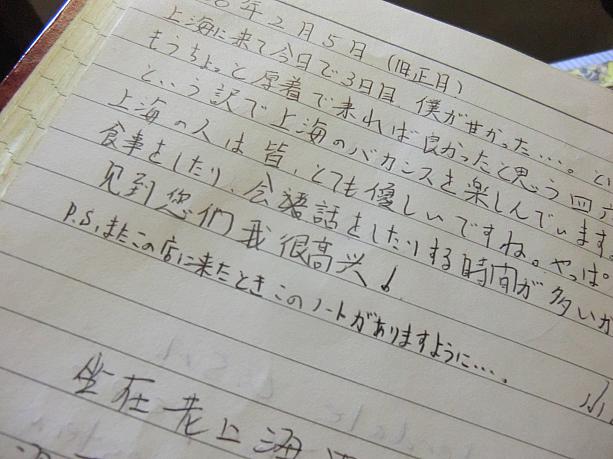 年2月5日(旧正月)
上海に来て今日で3日目 僕が甘かった....。
もうちょっと厚着で来れば良かったと思う
という訳で上海のバカンスを楽しんでいます。
上海の人は皆、とても優しいですね。やっぱ。
食事をしたり、会話をしたりする時間が多いか
见到您們我很高兴!
P.S.またこの店に来たときこのノートがありますように....。
坐在老上海